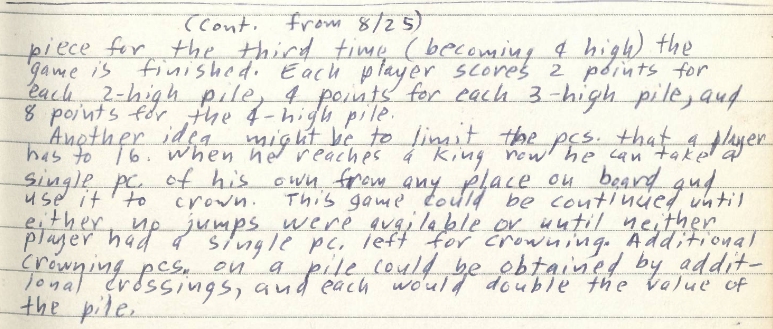 (cont. from 8/25)
piece for the third time (becoming 4 high) the
game is finished. Each player scores 2 points for
each 2-high pile, 4 points for each 3-high pile, and
8 points for the 4-high pile.
Another idea might be to limit the pcs. that a player
has to 16. When he reaches a king row he can take a
single pc. of his own from any place on board and
use it to crown. This game could be continued until
either no jumps were available or until neither
player had a single pc. left for crowning. Additional
crowning pcs. on a pile could be obtained by addit-
ional crossings, and each would double the value of
the pile.